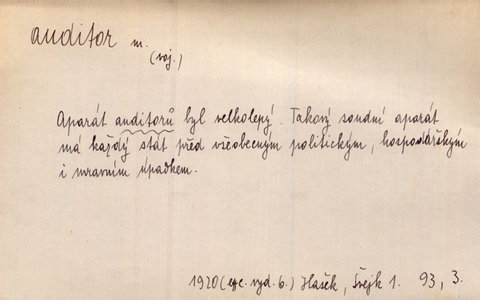 auditor m.
(voj.)
Aparát auditorů byl velkolepý. Takový soudní aparát
má každý stát před všeobecným politickým, hospodářským
i mravním úpadkem.
1920 (exc. vyd. 6.) Hašek, Švejk 1. 93, 3.